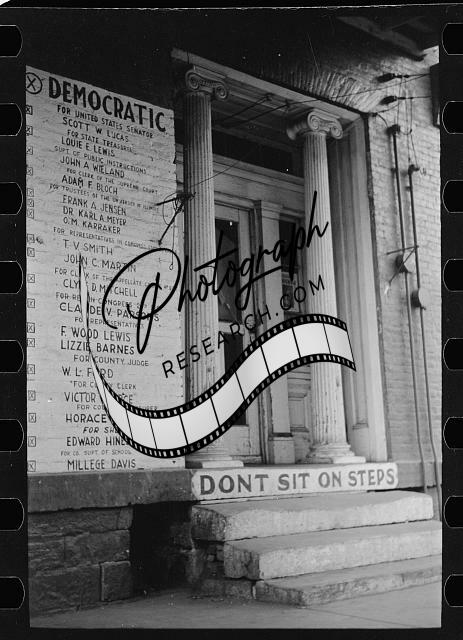 DEMOCRATIC
FOR UNITED STATES SENATOR
SCOTT W. LUCAS
FOR STATE TREASURER
LOUIE E. LEWIS
SUPT. OF PUBLIC INSTRUCTIONS
JOHN A. WIELAND
FOR CLERK OF THE SUPREME COURT
ADAM F. BLOCH
FOR TRUSTEES OF THE UNIVERSITY OF ILLINOIS
FRANK A. JENSEN
DR. KARL A. MEYER
O.M. KARRAKER
FOR REPRESENTATIVES IN CONGRESS
T. V. SMITH
JOHN C. MARTIN
FOR CLERK OF THE APPELLATE
CLYDE D. MITCHELL
CONGRESS
CLAUDE V. PARSONS
FOR REPRESENTATIVE
F. WOOD LEWIS
LIZZIE BARNES
FOR COUNTY JUDGE
W. L. FORD
FOR CLERK
VICTOR
FOR
HORACE
FOR
EDWARD
FOR CO. SUPT. OF SCHOOL
MILLEGE DAVIS
DONT SIT ON STEPS
Photograph
RESEARCH.COM